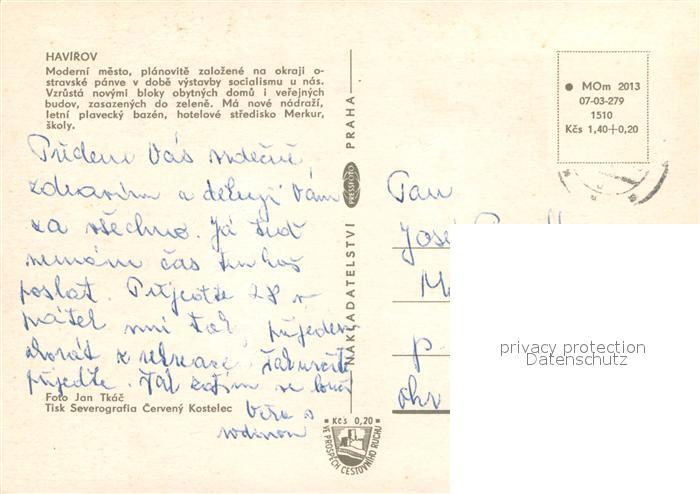 HAVÍŘOV
Moderní město, plánovitě založené na okraji o-
stravské pánve v době výstavby socialismu u nás.
Vzrůstá novými bloky obytných domů i veřejných
budov, zasazených do zeleně. Má nové nádraží,
letní plavecký bazén, hotelové středisko Merkur,
školy.
Předem Vás srdečně
zdravím a děkuji Vám
za všechno. Já teď
nemám čas
poslat. 28 v
pátek přijedem
akorát z rekreace.
přijeďte. se
Věra s
rodinou
Foto Jan Tkáč
Tisk Severografia Červený Kostelec
NAKLADATELSTVÍ PRESSFOTO PRAHA
Kčs 0,20
VE PROSPĚCH CESTOVNÍHO RUCHU
MOm 2013
07-03-279
1510
Kčs 1,40+0,20
Pan
Josef
p.
okr
privacy protection
Datenschutz